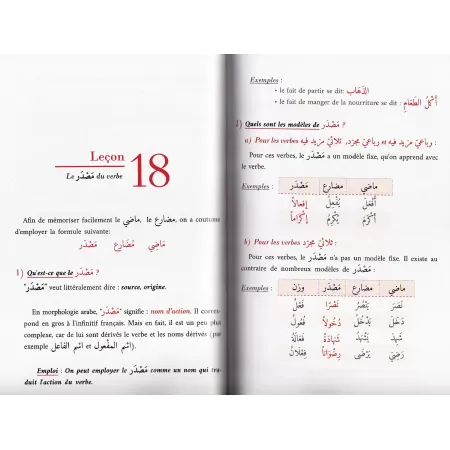 Leçon
18
Le مَصْدَر du verbe
Afin de mémoriser facilement le مَاضِي, le مضارع, on a coutume
d'employer la formule suivante:
مَاضِي مُضَارِع مَصْدَر
1) Qu'est-ce que le مَصْدَر ?
"مَصْدَر" veut littéralement dire : source, origine.
En morphologie arabe, "مَصْدَر" signifie : nom d'action. Il corres-
pond en gros à l'infinitif français. Mais en fait, il est un peu plus
complexe, car de lui sont dérivés le verbe et les noms dérivés (par
exemple اسم الفاعل et اسم المفعول).
Emploi : On peut employer le مَصْدَر comme un nom qui tra-
duit l'action du verbe.
Exemples :
• le fait de partir se dit: الذَّهَاب
• le fait de manger de la nourriture se dit: أَكْلُ الطَّعَامِ
1) Quels sont les modèles de مَصْدَر ?
a) Pour les verbes رباعيّ مجرّد, ثلاثيّ مزيد فيه et رباعيّ مزيد فيه :
Pour ces verbes, le مَصْدَر a un modèle fixe, qu'on apprend avec
le verbe.
Exemples :
ماضي مضارع مَصْدَر
أَفْعَلَ يُفْعِلُ إفعالاً
أَكْرَمَ يُكْرِمُ إكْرَاماً
b) Pour les verbes ثلاثيّ مجرّد :
Pour ces verbes, le مَصْدَر n'a pas un modèle fixe. Il existe au
contraire de nombreux modèles de مَصْدَر :
Exemples :
ماضي مضارع مَصْدَر وزن
نَصَرَ يَنْصُرُ نَصْرًا فَعْلٌ
دَخَلَ يَدْخُلُ دُخُولاً فُعُولٌ
شَهِدَ يَشْهَدُ شَهَادَةً فَعَالَةٌ
رَضِيَ يَرْضَى رِضْوَاناً فِعْلَانٌ